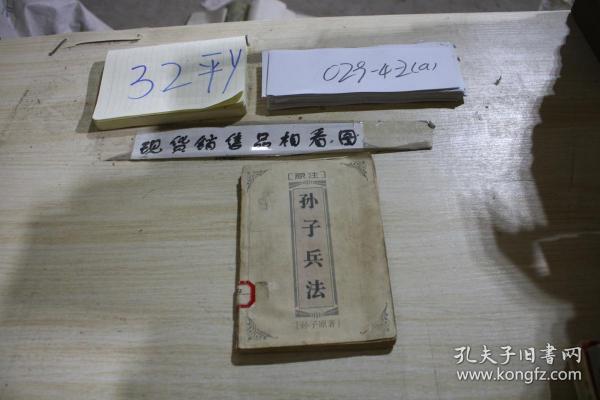 32平y
029-42(a)
现货销售品相看图
[原注]
孙子兵法
[孙子原著]
孔夫子旧书网
www.kongfz.com